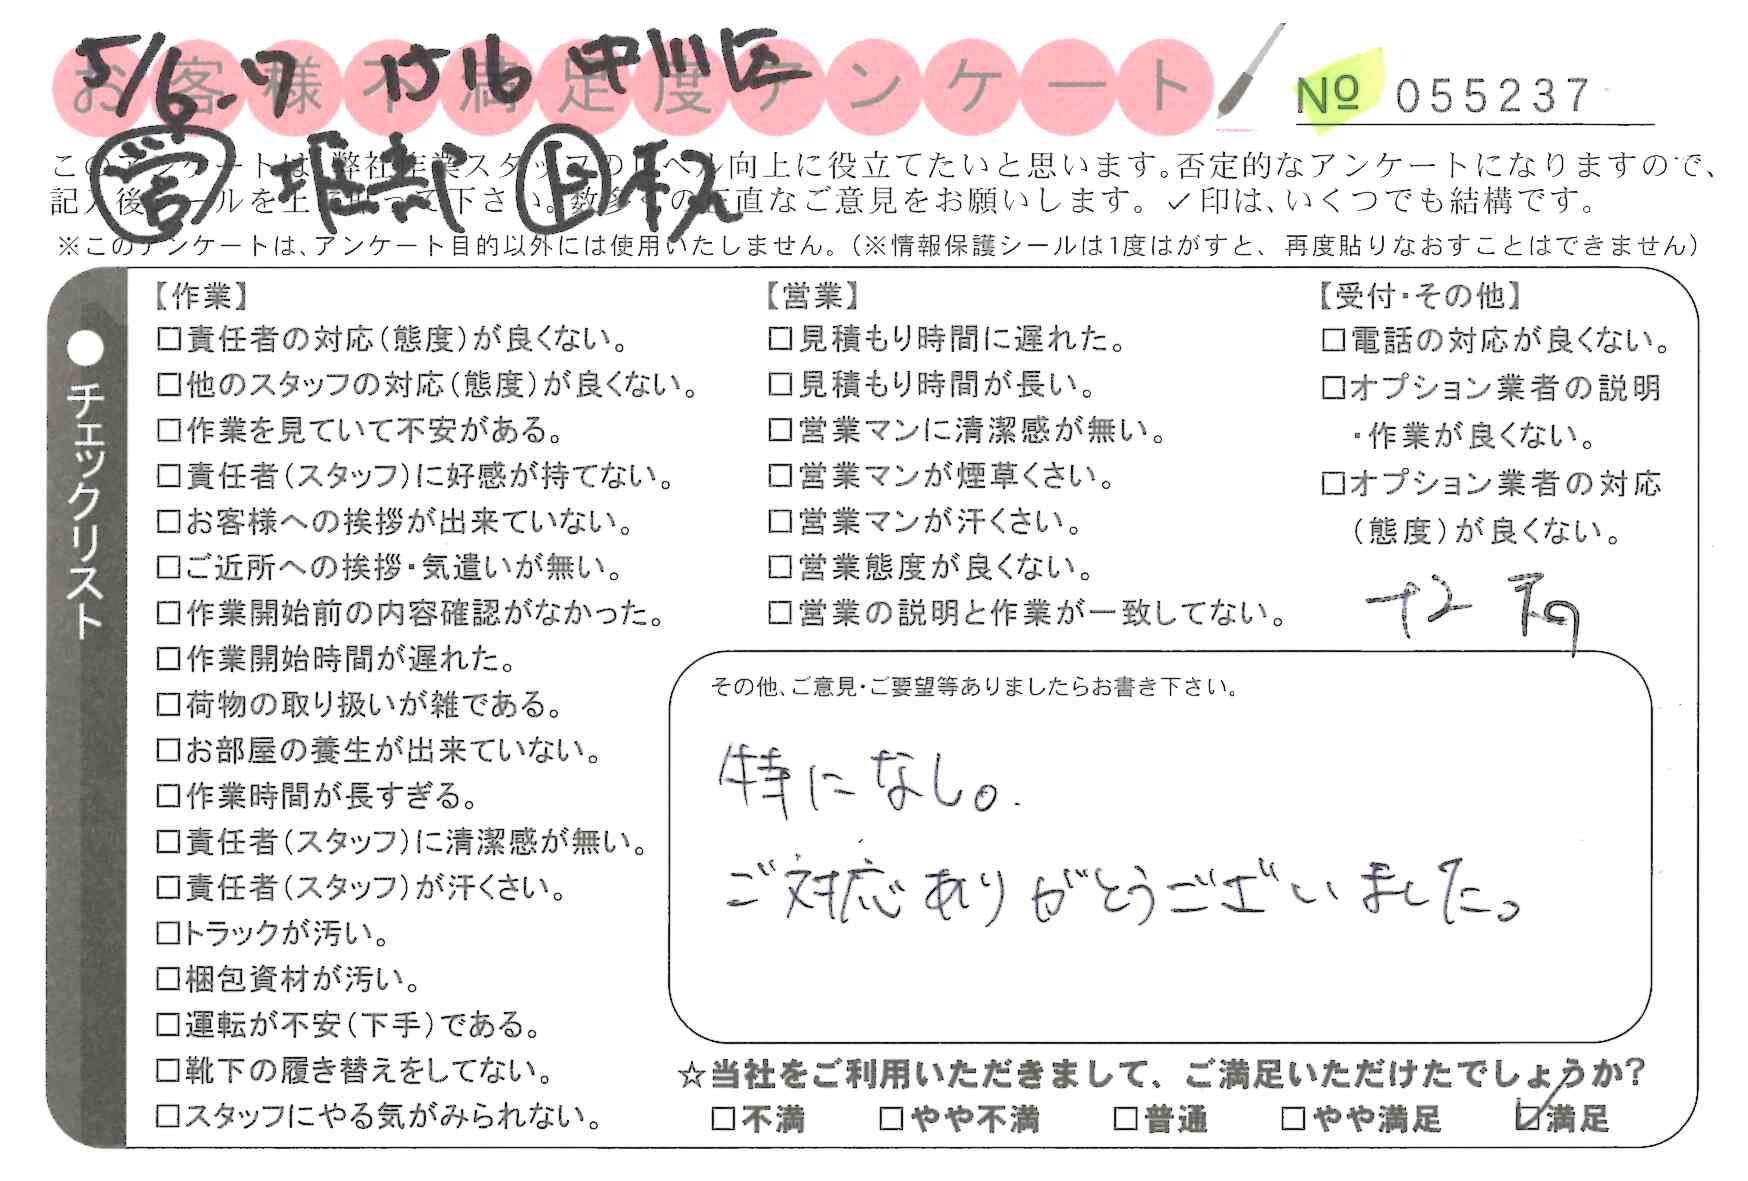 5/6.7 中川区
お客様不満足度アンケート
№ 055237
営 堀 上
このアンケートは、弊社作業スタッフのレベル向上に役立てたいと思います。否定的なアンケートになりますので、
記入後シールを上に貼って下さい。数多くの正直なご意見をお願いします。✓印は、いくつでも結構です。
※このアンケートは、アンケート目的以外には使用いたしません。（※情報保護シールは1度はがすと、再度貼りなおすことはできません）
●チェックリスト
【作業】
□責任者の対応（態度）が良くない。
□他のスタッフの対応（態度）が良くない。
□作業を見ていて不安がある。
□責任者（スタッフ）に好感が持てない。
□お客様への挨拶が出来ていない。
□ご近所への挨拶・気遣いが無い。
□作業開始前の内容確認がなかった。
□作業開始時間が遅れた。
□荷物の取り扱いが雑である。
□お部屋の養生が出来ていない。
□作業時間が長すぎる。
□責任者（スタッフ）に清潔感が無い。
□責任者（スタッフ）が汗くさい。
□トラックが汚い。
□梱包資材が汚い。
□運転が不安（下手）である。
□靴下の履き替えをしてない。
□スタッフにやる気がみられない。
【営業】
□見積もり時間に遅れた。
□見積もり時間が長い。
□営業マンに清潔感が無い。
□営業マンが煙草くさい。
□営業マンが汗くさい。
□営業態度が良くない。
□営業の説明と作業が一致してない。
【受付・その他】
□電話の対応が良くない。
□オプション業者の説明
・作業が良くない。
□オプション業者の対応
（態度）が良くない。
その他、ご意見・ご要望等ありましたらお書き下さい。
特になし。
ご対応ありがとうございました。
☆当社をご利用いただきまして、ご満足いただけたでしょうか？
□不満 □やや不満 □普通 □やや満足 ☑満足